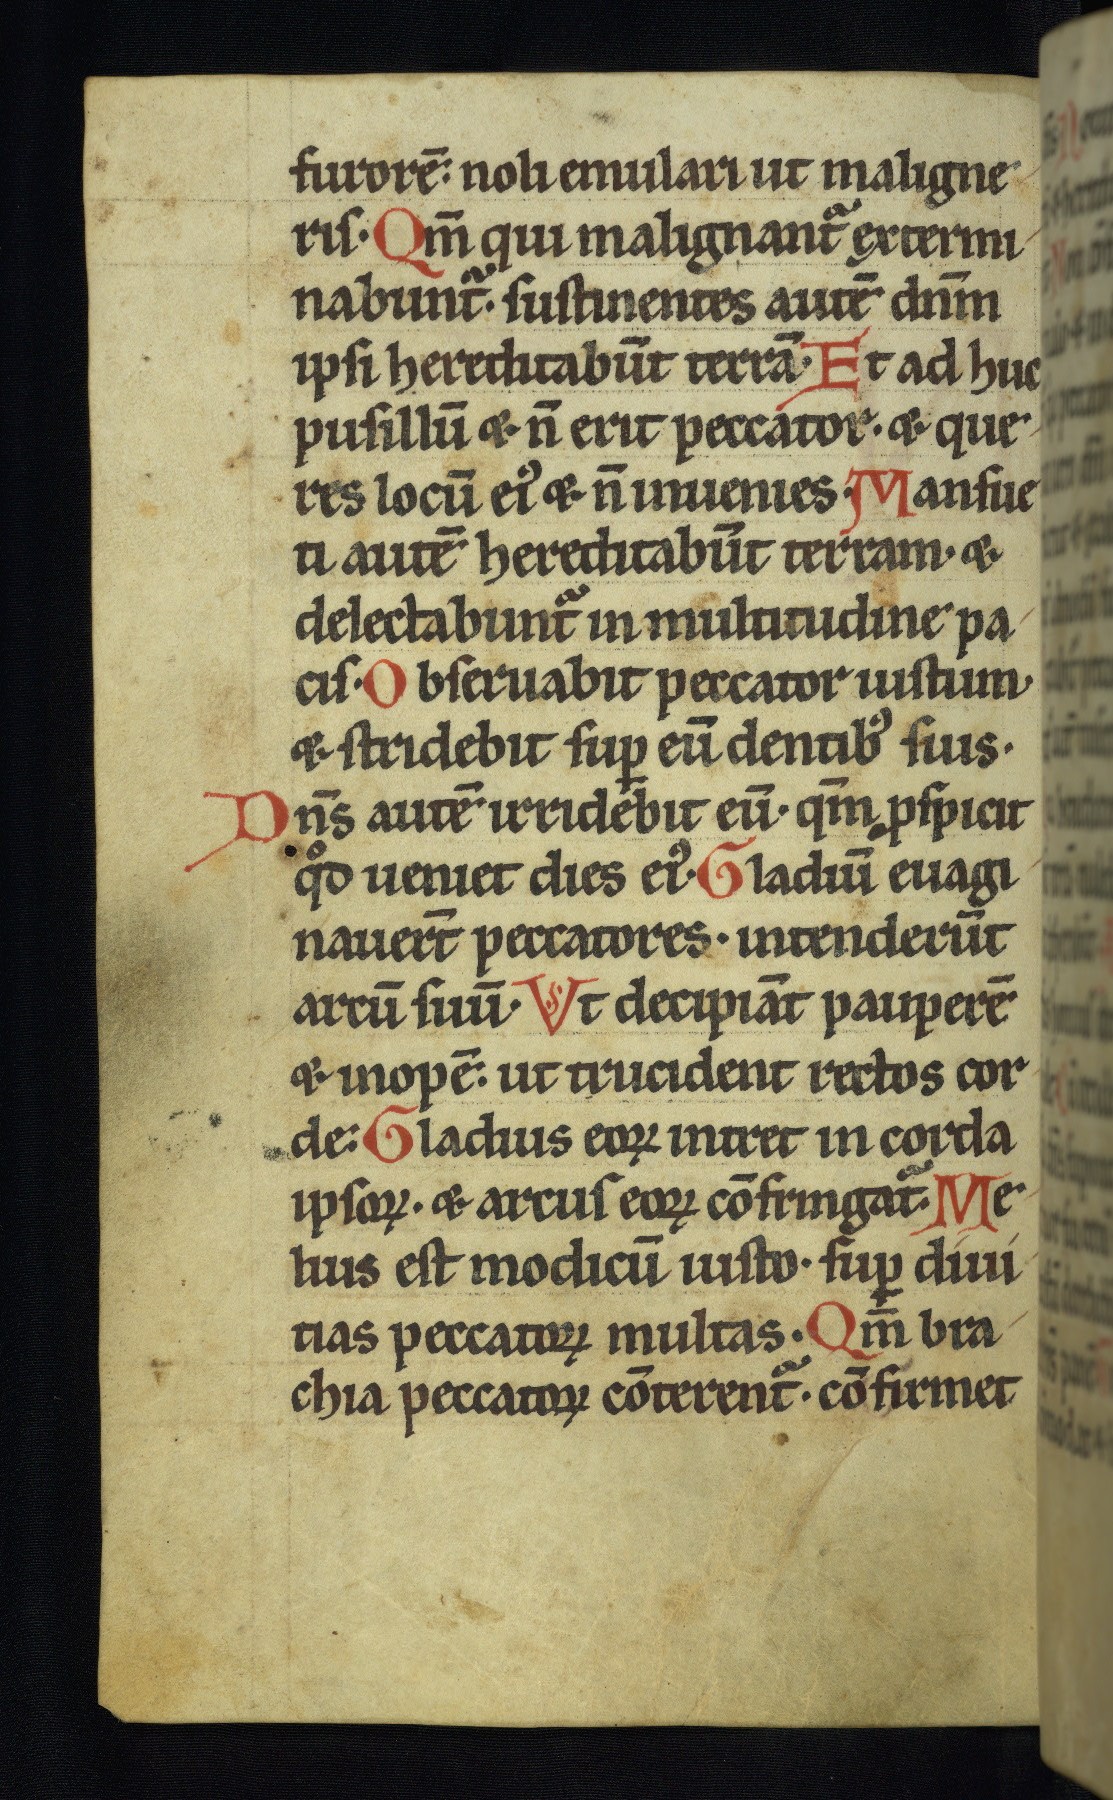 furorē: noli emulari ut maligne
ris. Qm̄ qui malignant᷑ extermi
nabunt᷑. sustinentes autē dn̄m
ipsi hereditabūt terrā. Et ad huc
pusillū & n̄ erit peccator. & que
res locū eiꝰ & n̄ inuenies. Mansue
ti autē hereditabūt terram. &
delectabunt᷑ in multitudine pa
cis. Obseruabit peccator iustum.
& stridebit sup̱ eū dentibꝰ suis.
Dn̄s autē irridebit eū. qm̄ ꝑspicit
qͦd ueniet dies eiꝰ. Gladiū euagi
nauert̄ peccatores. intenderūt
arcū suū. Vt decipiāt pauperē
& inopē: ut trucident rectos cor
de: Gladius eoꝝ intret in corda
ipsoꝝ. & arcus eoꝝ cōfringat᷑. Me
lius est modicū iusto. suꝑ diui
tias peccatoꝝ multas. Qm̄ bra
chia peccatoꝝ cōterent᷑. cōfirmet